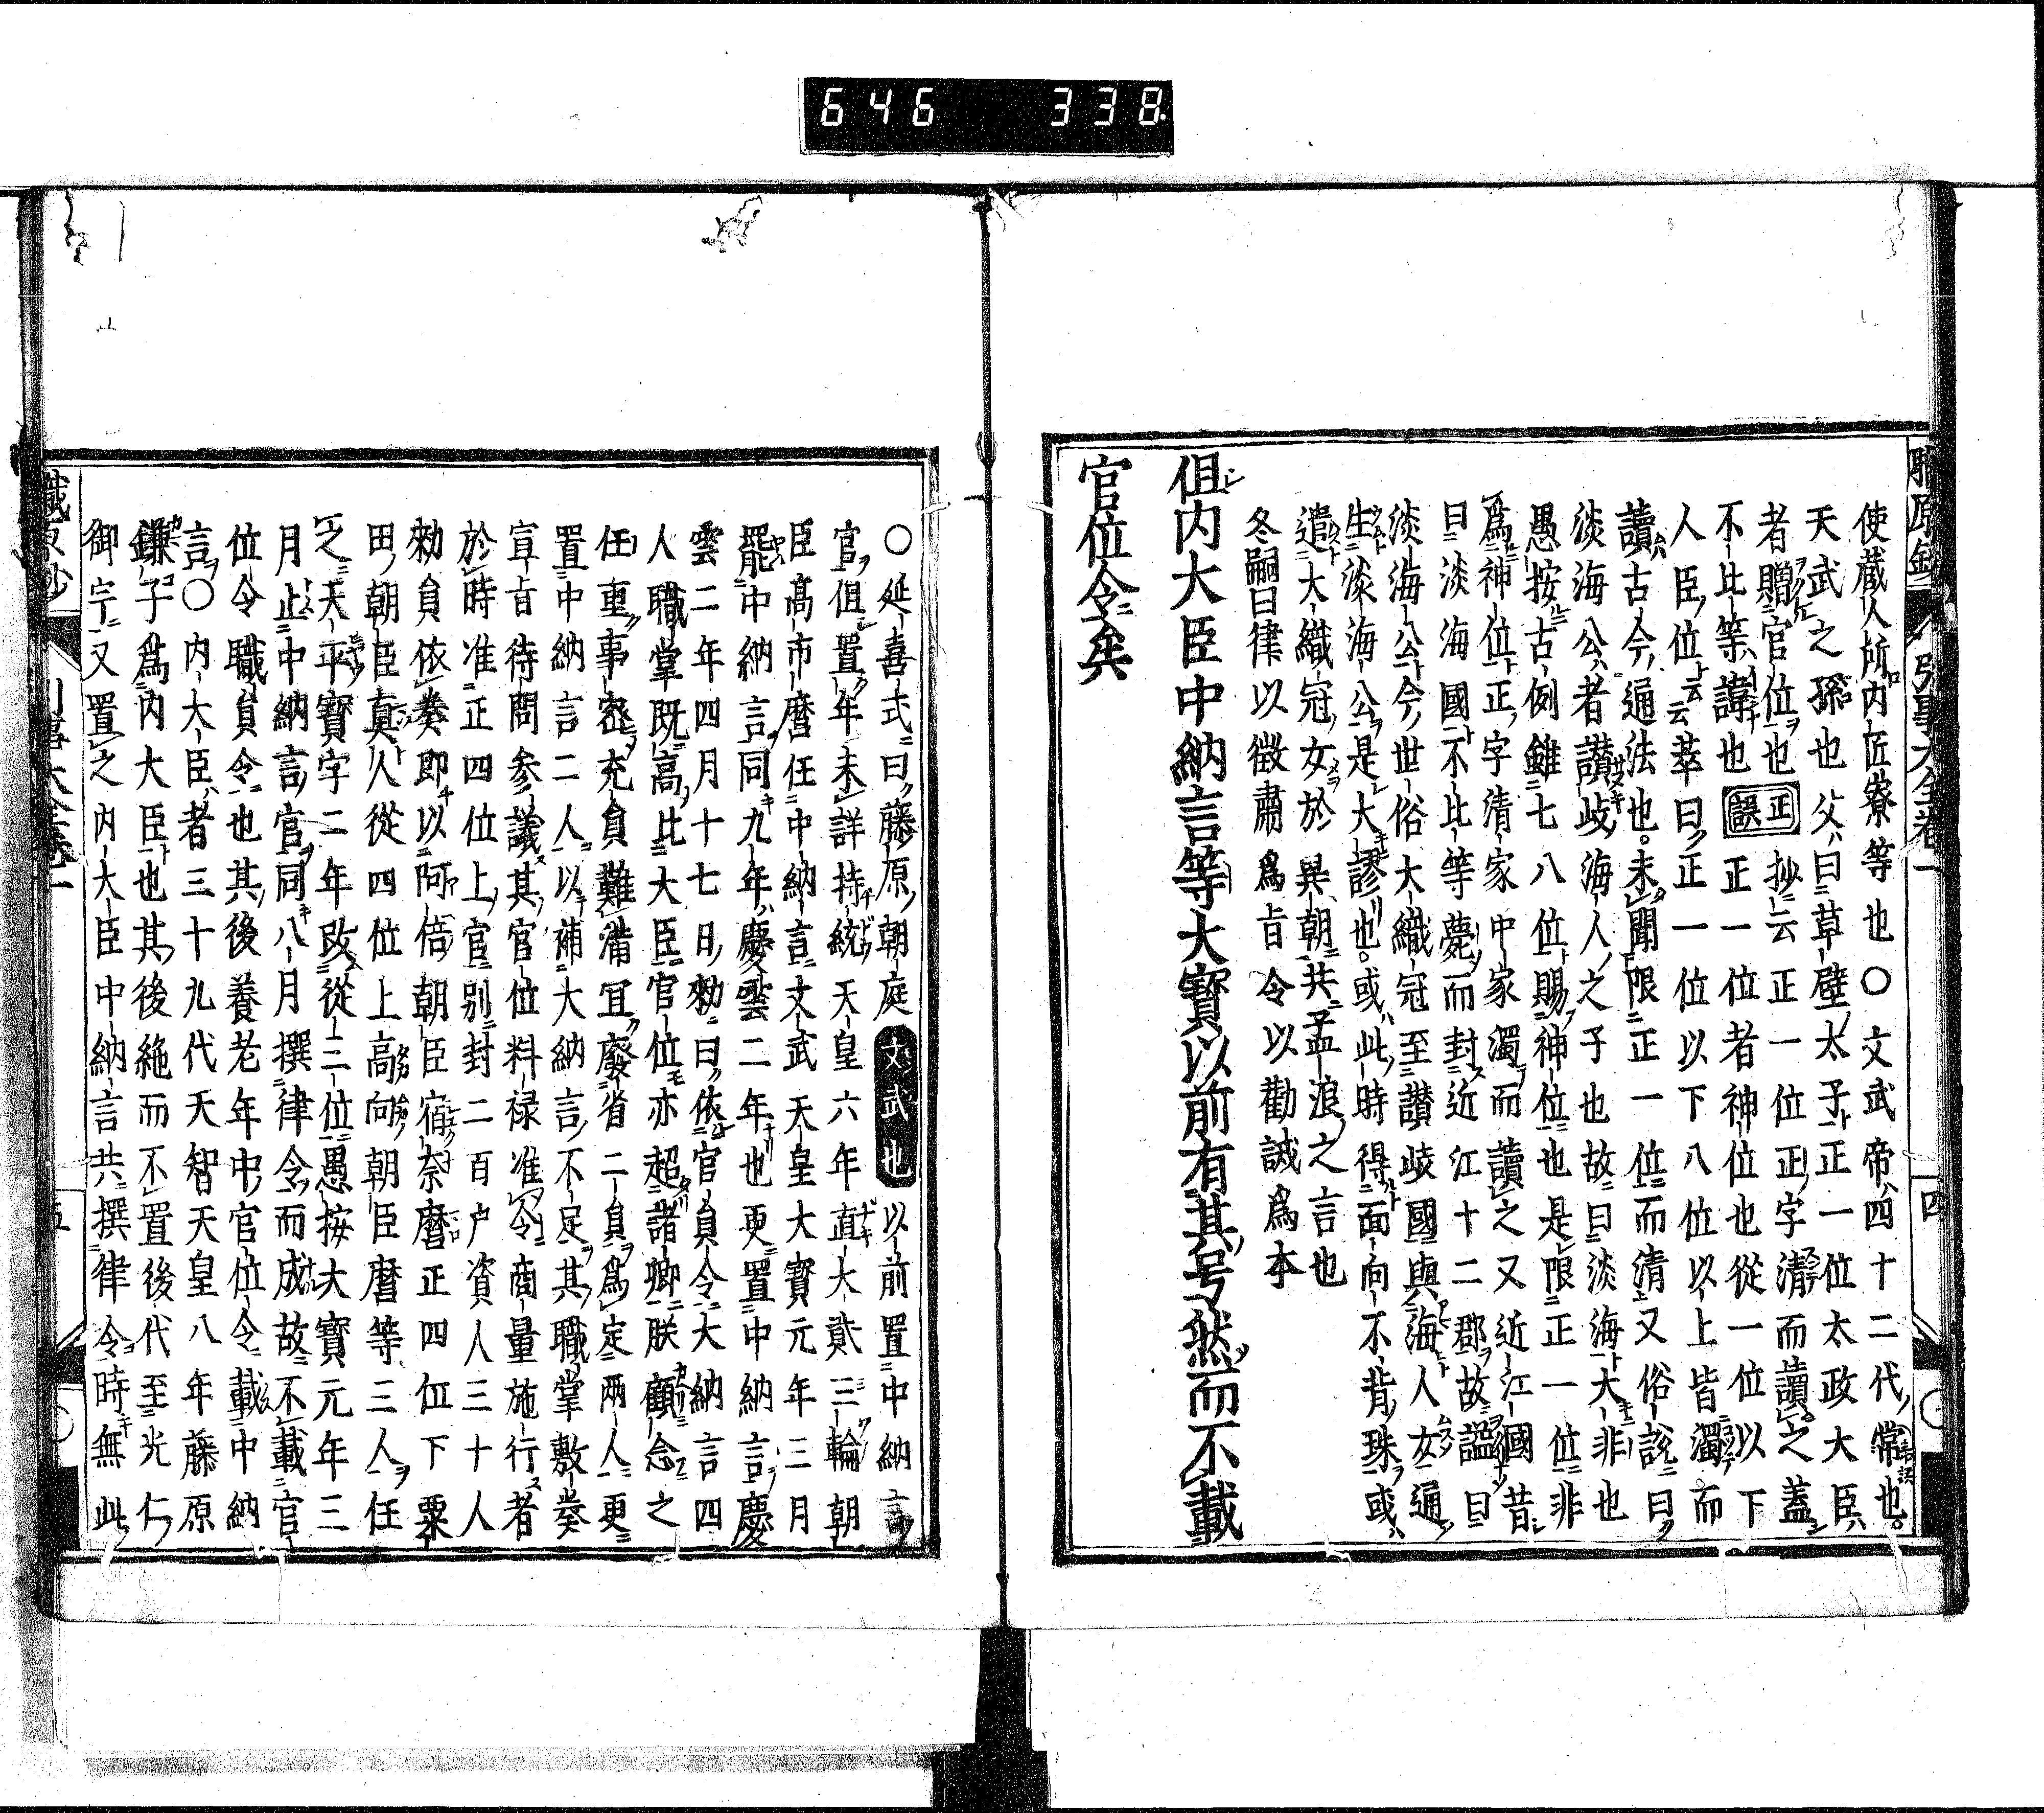 646 338
使蔵人所内匠寮等也〇文武帝四十二代常也
天武之孫也父曰草壁太子正一位太政大臣
者贈官位也 正誤 抄云正一位正字清而讀之蓋
不比等諱也 正一位者神位也從一位以下
人臣位云云莘曰正一位以下八位以上皆濁而
讀古今通法也未聞限正一位而清又俗説曰
淡海公者讃岐海人之子也故曰淡海大非也
愚按古例雖七八位賜神位也是限正一位非
爲神位正字清家中家濁而讀之又近江國昔
曰淡海國不比等薨而封近江十二郡故謚曰
淡海公今世俗大織冠至讃岐國與海人女通
生淡海公是大謬也或此時得面向不背珠或
遣大織冠女於異朝共孟浪之言也
冬嗣曰律以徴肅爲旨令以勸誠爲本
但内大臣中納言等大寳以前有其号然而不載
官位令矣
四
〇延喜式曰藤原朝庭 文武也 以前置中納言
官但置年未詳持統天皇六年直大貮三輪朝
臣髙市麿任中納言文武天皇大寳元年三月
罷中納言同九年慶雲二年也更置中納言慶
雲二年四月十七日勅曰依官員令大納言四
人職掌既髙比大臣官位亦超諸卿朕顧念之
任重事密充員難滿冝廢省二員爲定兩人更
置中納言二人以補大納言不足其職掌敷奏
宣旨待問参議其官位料禄准令商量施行者
於時准正四位上官别封二百戸資人三十人
勅員依奏即以阿倍朝臣宿奈麿正四位下粟
田朝臣真人從四位上髙向朝臣麿等三人任
之天平寳字二年改從三位愚按大寳元年三
月止中納言官同八月撰律令而成故不載官
位令職員令也其後養老年中官位令載中納
言〇内大臣者三十九代天智天皇八年藤原
鎌子爲内大臣也其後絶而不置後代至光仁
御宇又置之内大臣中納言共撰律令時無此
五